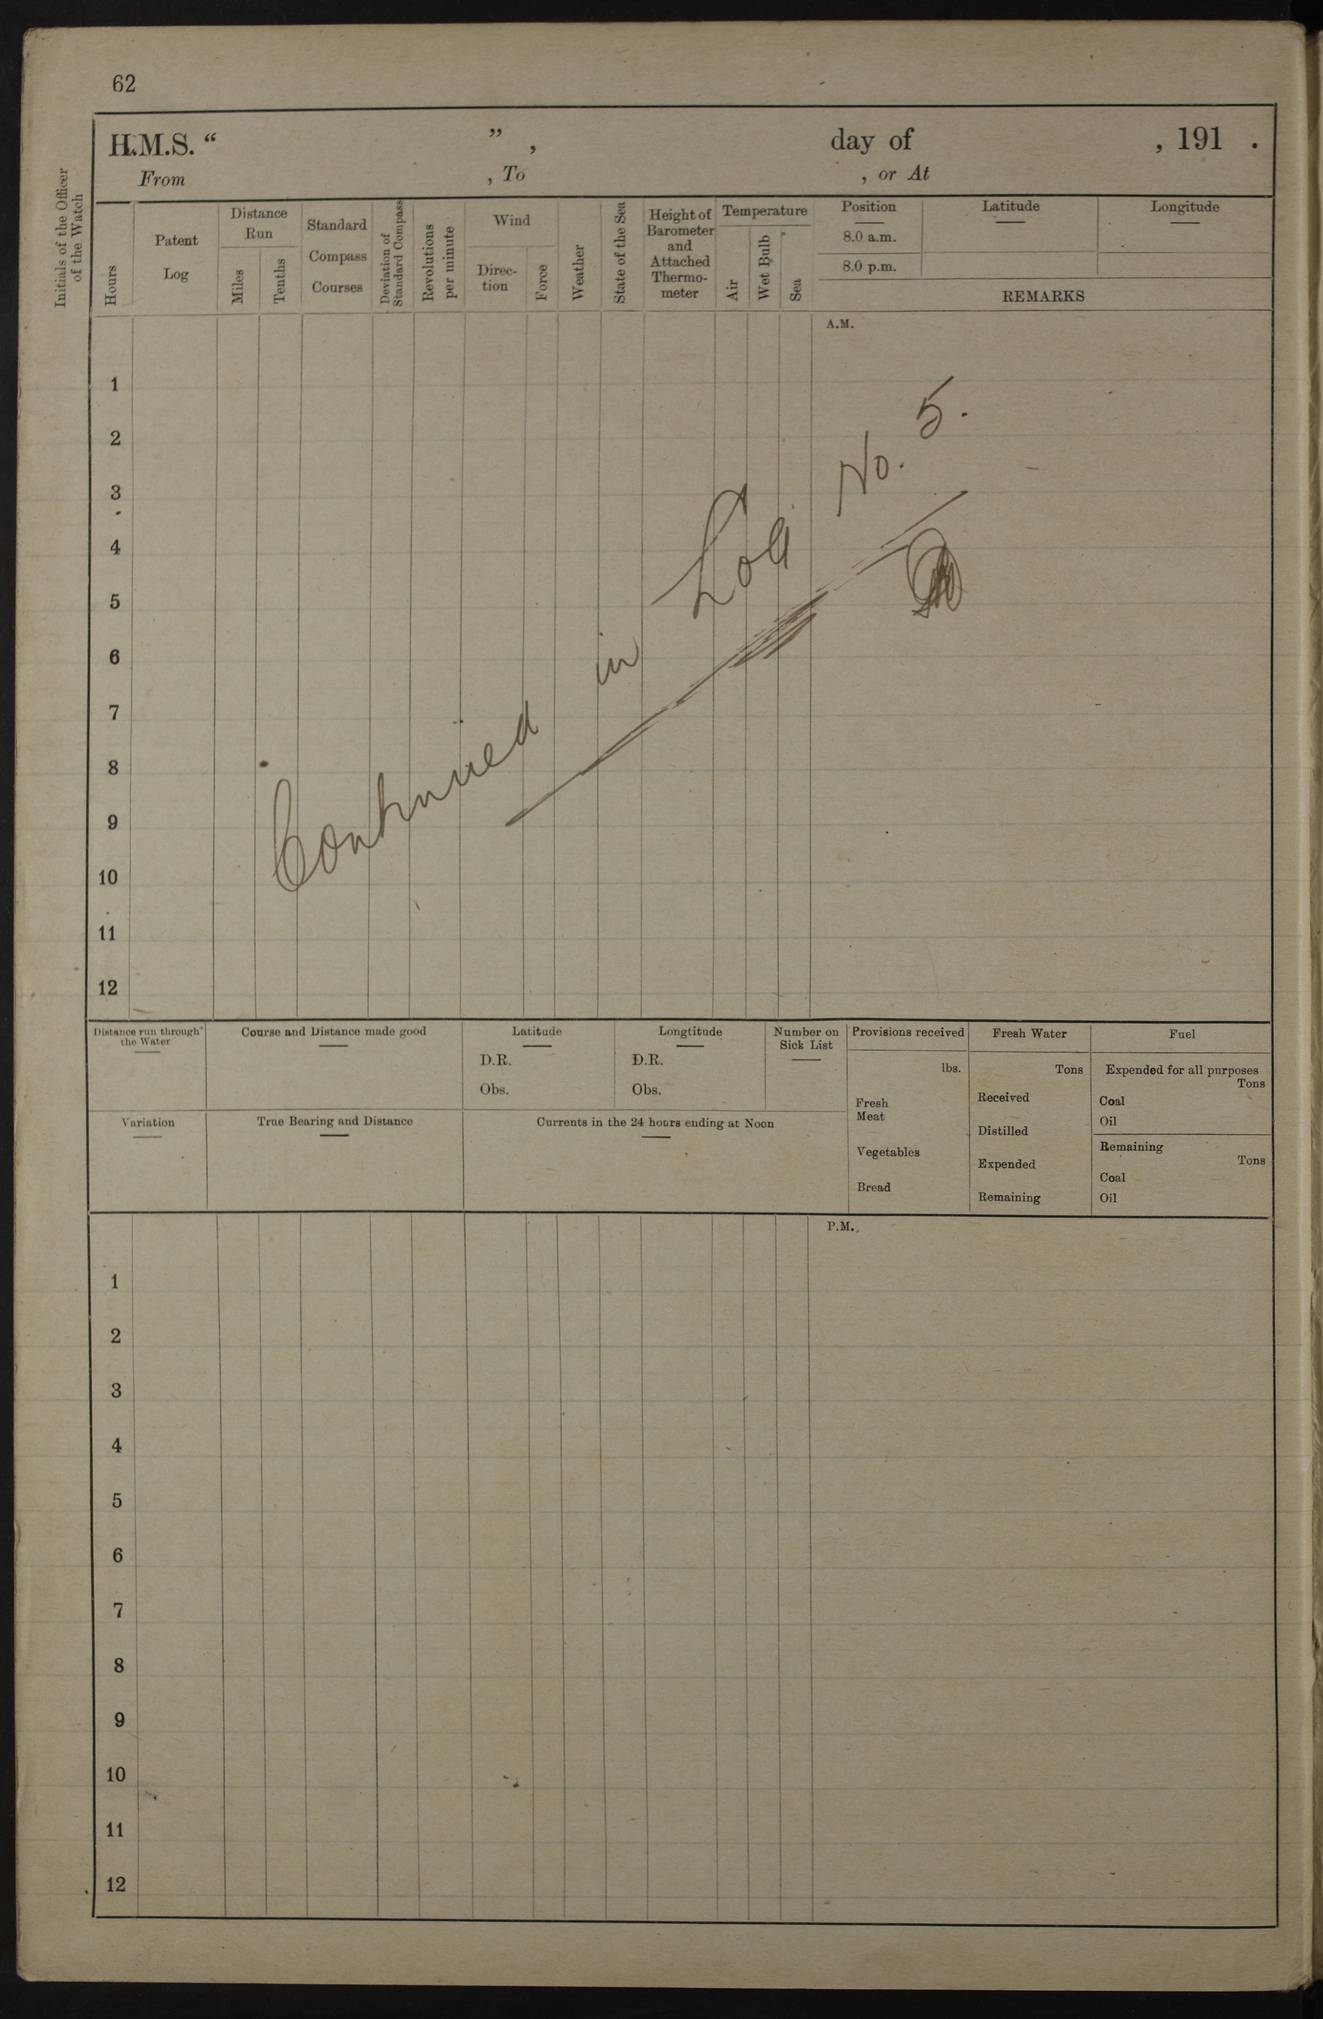 62
H.M.S. “ ”, day of , 191 .
From , To , or At
Initials of the Officer of the Watch
Hours
Patent Log
Distance Run
Miles
Tenths
Standard Compass Courses
Deviation of Standard Compass
Revolutions per minute
Wind
Direc-
tion
Force
Weather
State of the Sea
Height of
Barometer
and
Attached
Thermo-
meter
Temperature
Air
Wet Bulb
Sea
Position
Latitude
Longitude
8.0 a.m.
8.0 p.m.
REMARKS
A.M.
1
2
3
4
5
6
7
8
9
10
11
12
Continued in Log No. 5.
Distance run through
the Water
Course and Distance made good
Latitude
D.R.
Obs.
Longtitude
D.R.
Obs.
Number on
Sick List
Variation
True Bearing and Distance
Currents in the 24 hours ending at Noon
Provisions received
lbs.
Fresh
Meat
Vegetables
Bread
Fresh Water
Tons
Received
Distilled
Expended
Remaining
Fuel
Expended for all purposes
Tons
Coal
Oil
Remaining
Tons
Coal
Oil
P.M.
1
2
3
4
5
6
7
8
9
10
11
12